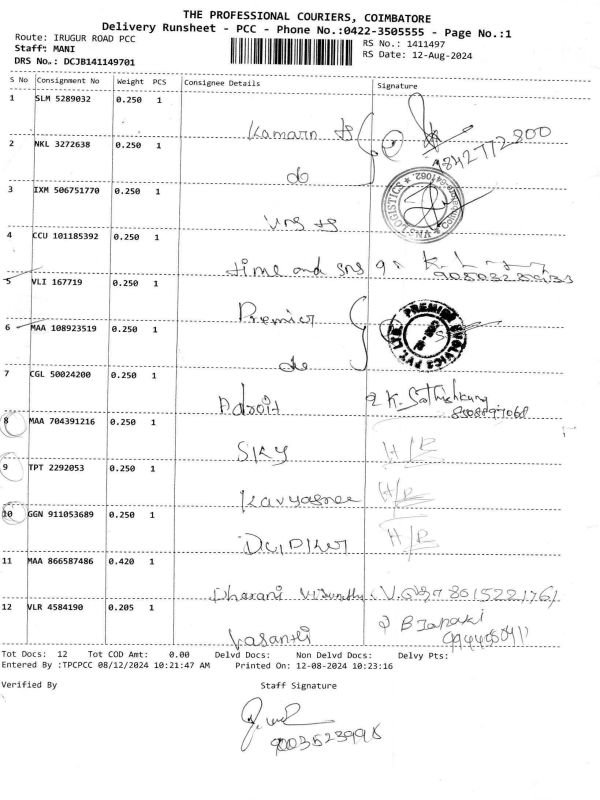 THE PROFESSIONAL COURIERS, COIMBATORE
Delivery Runsheet - PCC - Phone No.:0422-3505555 - Page No.:1
Route: IRUGUR ROAD PCC
RS No.: 1411497
Staff: MANI
RS Date: 12-Aug-2024
DRS No.: DCJB141149701
S No Consignment No Weight PCS Consignee Details Signature
1 SLM 5289032 0.250 1
Kamarn
2 NKL 3272638 0.250 1 9842772800
do
3 IXM 506751770 0.250 1
VNS LOGISTICS
4 CCU 101185392 0.250 1
time and sns
5 VLI 167719 0.250 1
Premier
6 MAA 108923519 0.250 1
PREMIER EVOLVICS PVT. LTD.
do
7 CGL 50024200 0.250 1
Adroit K. Sathishkumar
8 MAA 704391216 0.250 1
SKY H/R
9 TPT 2292053 0.250 1
Kavyasree H/R
10 GGN 911053689 0.250 1
H/R
11 MAA 866587486 0.420 1
Dharani
12 VLR 4584190 0.205 1
Vasanthi B Janaki
Tot Docs: 12 Tot COD Amt: 0.00 Delvd Docs: Non Delvd Docs: Delvy Pts:
Entered By :TPCPCC 08/12/2024 10:21:47 AM Printed On: 12-08-2024 10:23:16
Verified By Staff Signature